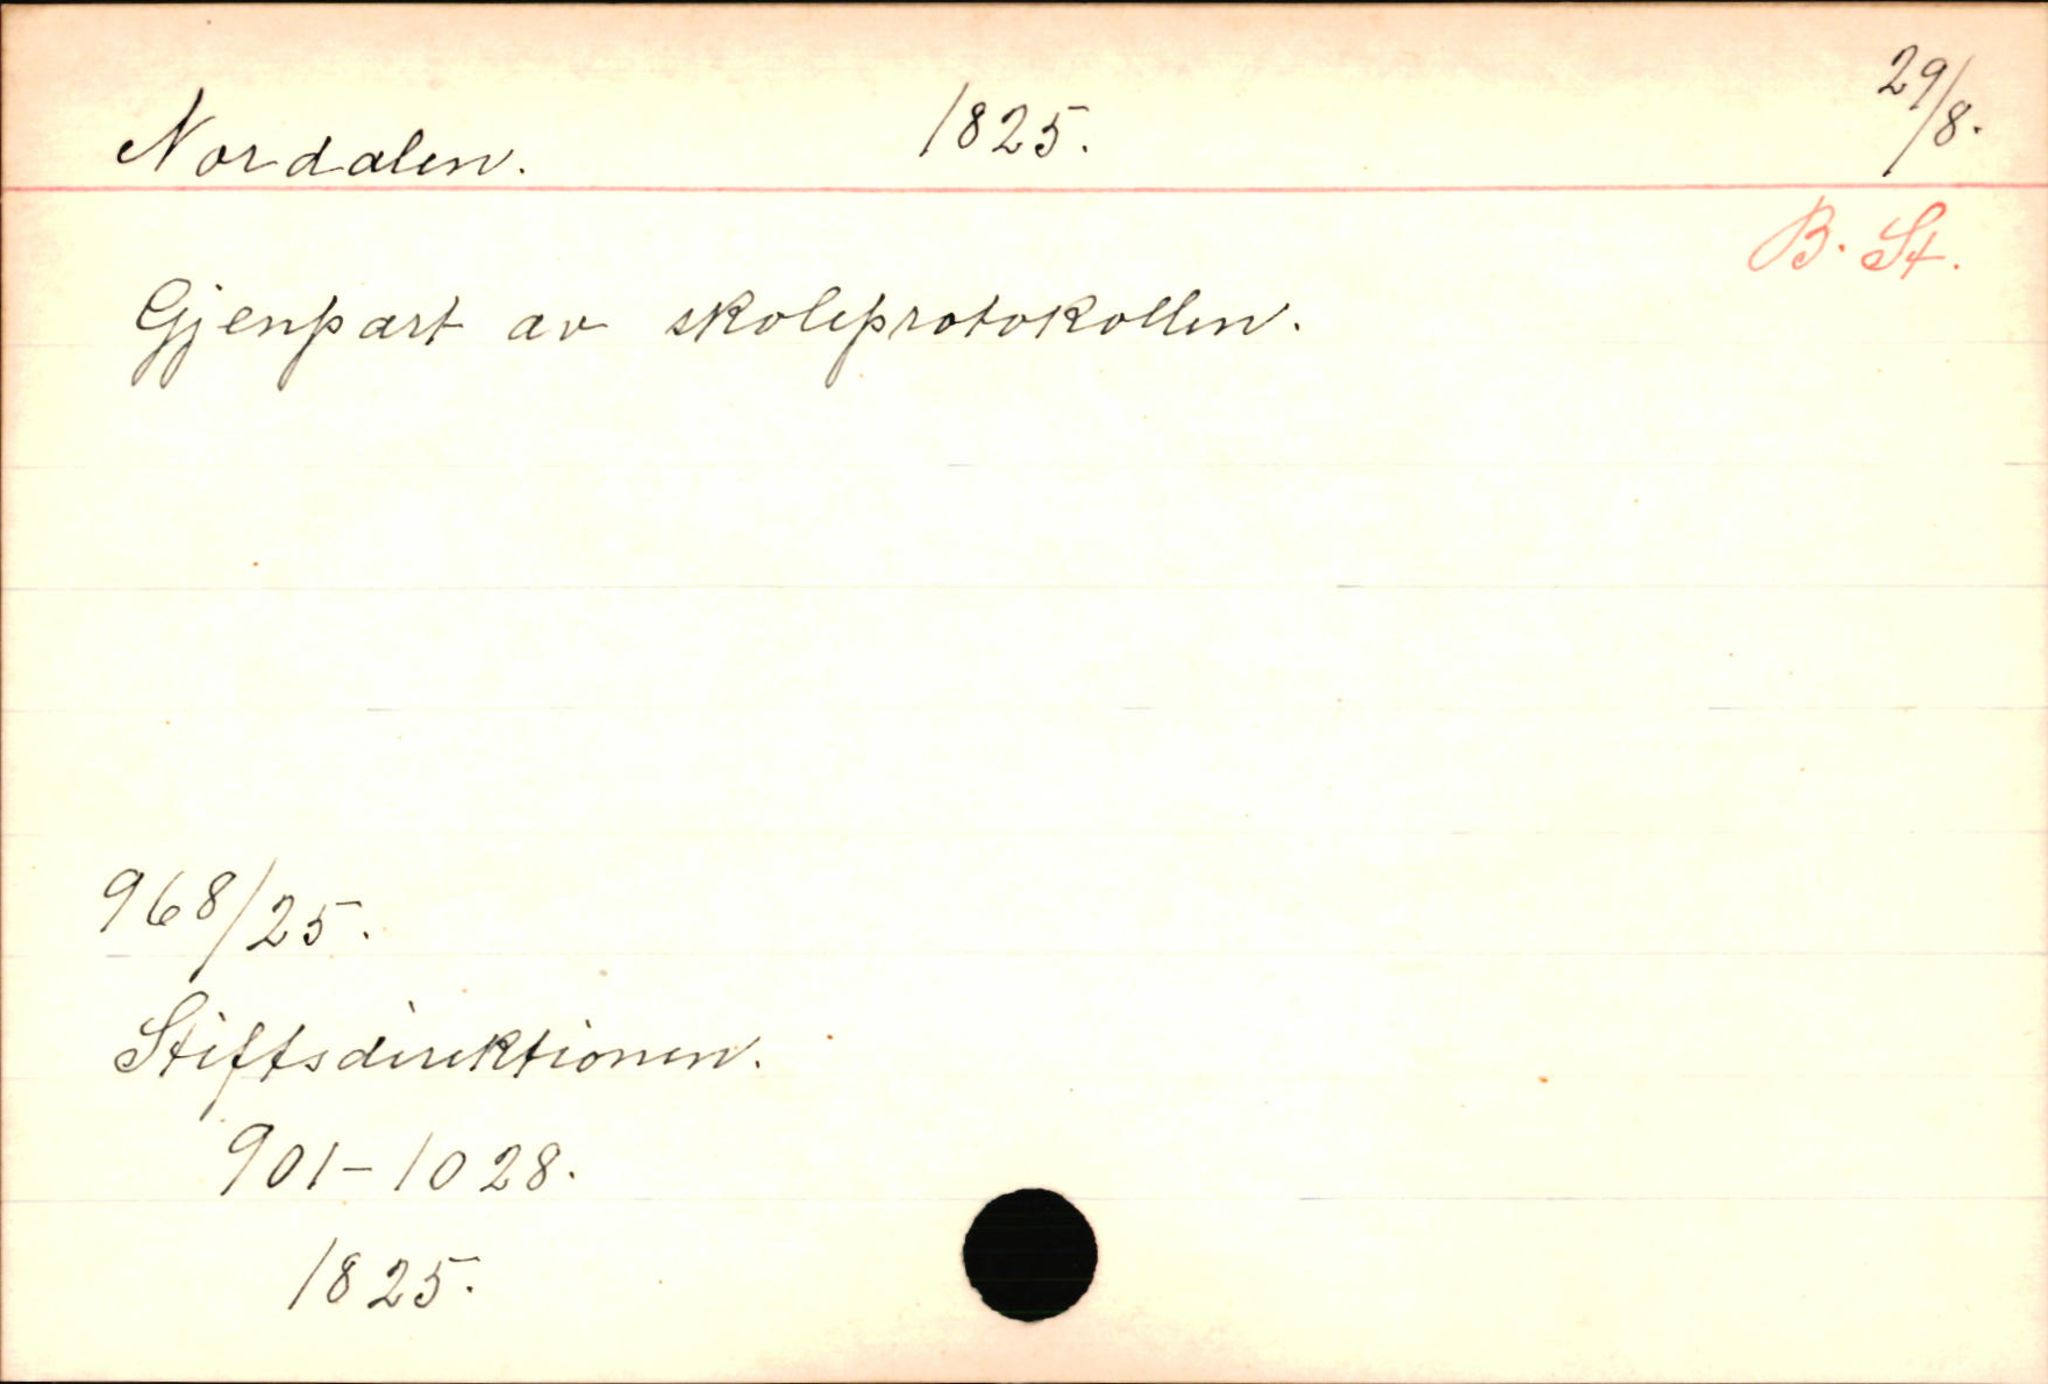 Nordalen. 1825. 29/8.
B. St.
Gjenpart av skoleprotokollen.
968/25.
Stiftsdirektionen.
901-1028.
1825.